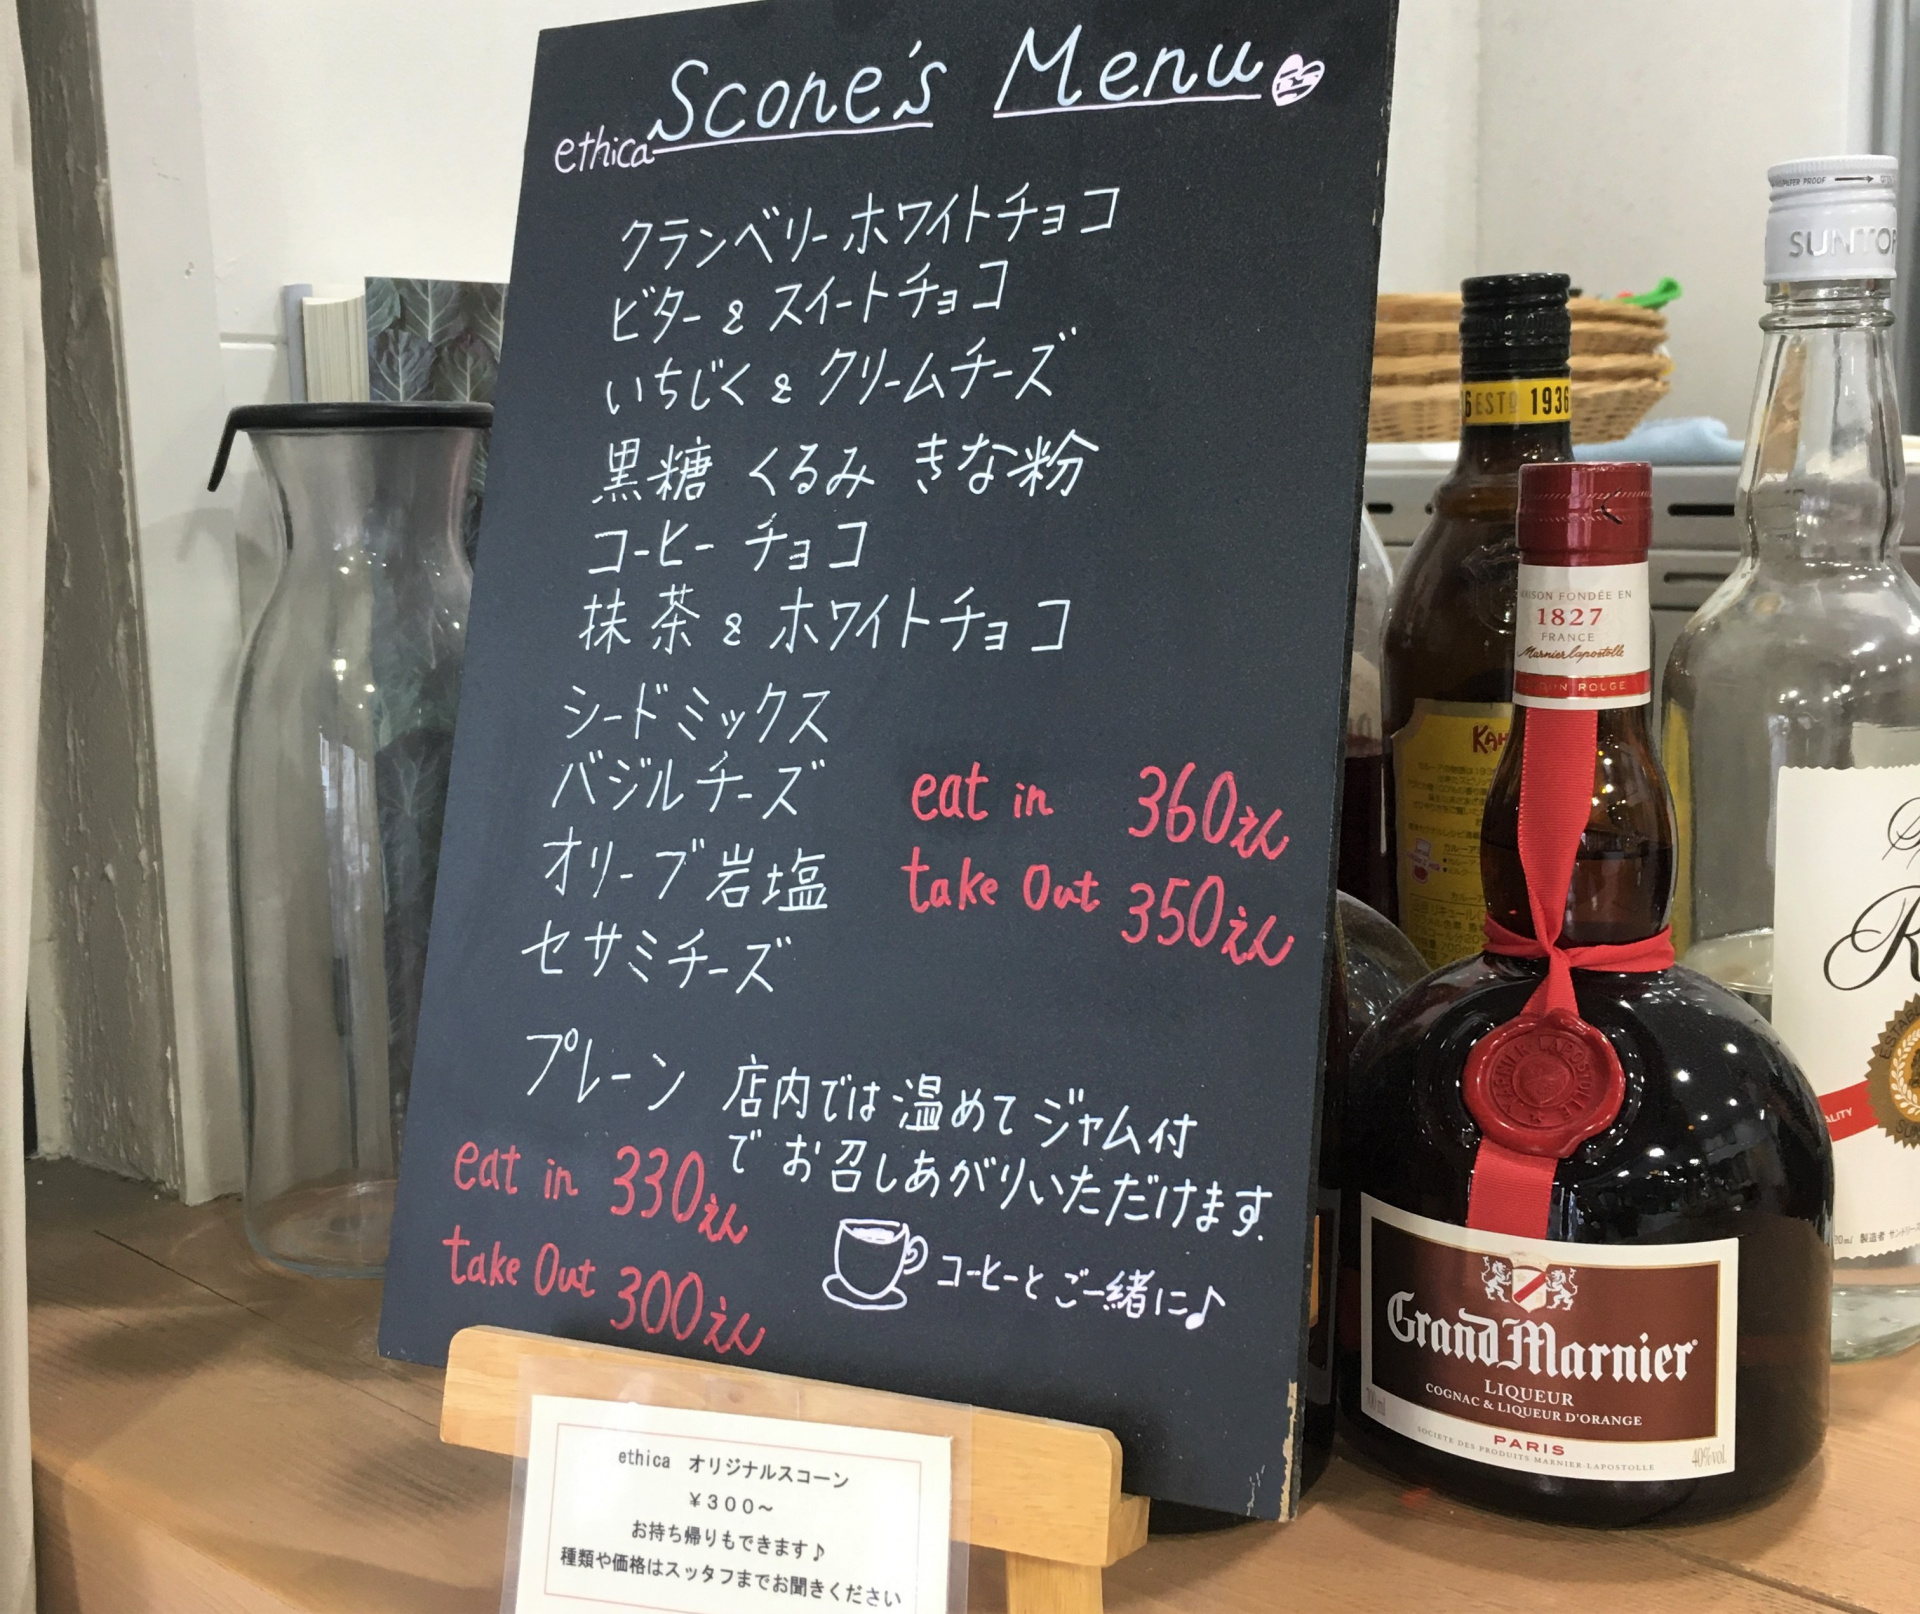 Scone's Menu
ethica
クランベリーホワイトチョコ
ビター & スイートチョコ
いちじく & クリームチーズ
黒糖 くるみ きな粉
コーヒー チョコ
抹茶 & ホワイトチョコ
シードミックス
バジルチーズ
オリーブ岩塩
セサミチーズ
eat in 360えん
take Out 350えん
プレーン
店内では温めてジャム付
でお召しあがりいただけます.
eat in 330えん
take Out 300えん
コーヒーとご一緒に♪
ethica オリジナルスコーン
￥３００～
お持ち帰りもできます♪
種類や価格はスッタフまでお聞きください
ESTD 1936
MAISON FONDÉE EN
1827
FRANCE
Marnier Lapostolle
CORDON ROUGE
Grand Marnier
LIQUEUR
COGNAC & LIQUEUR D'ORANGE
PARIS
SOCIETE DES PRODUITS MARNIER-LAPOSTOLLE
700ml
40%vol.